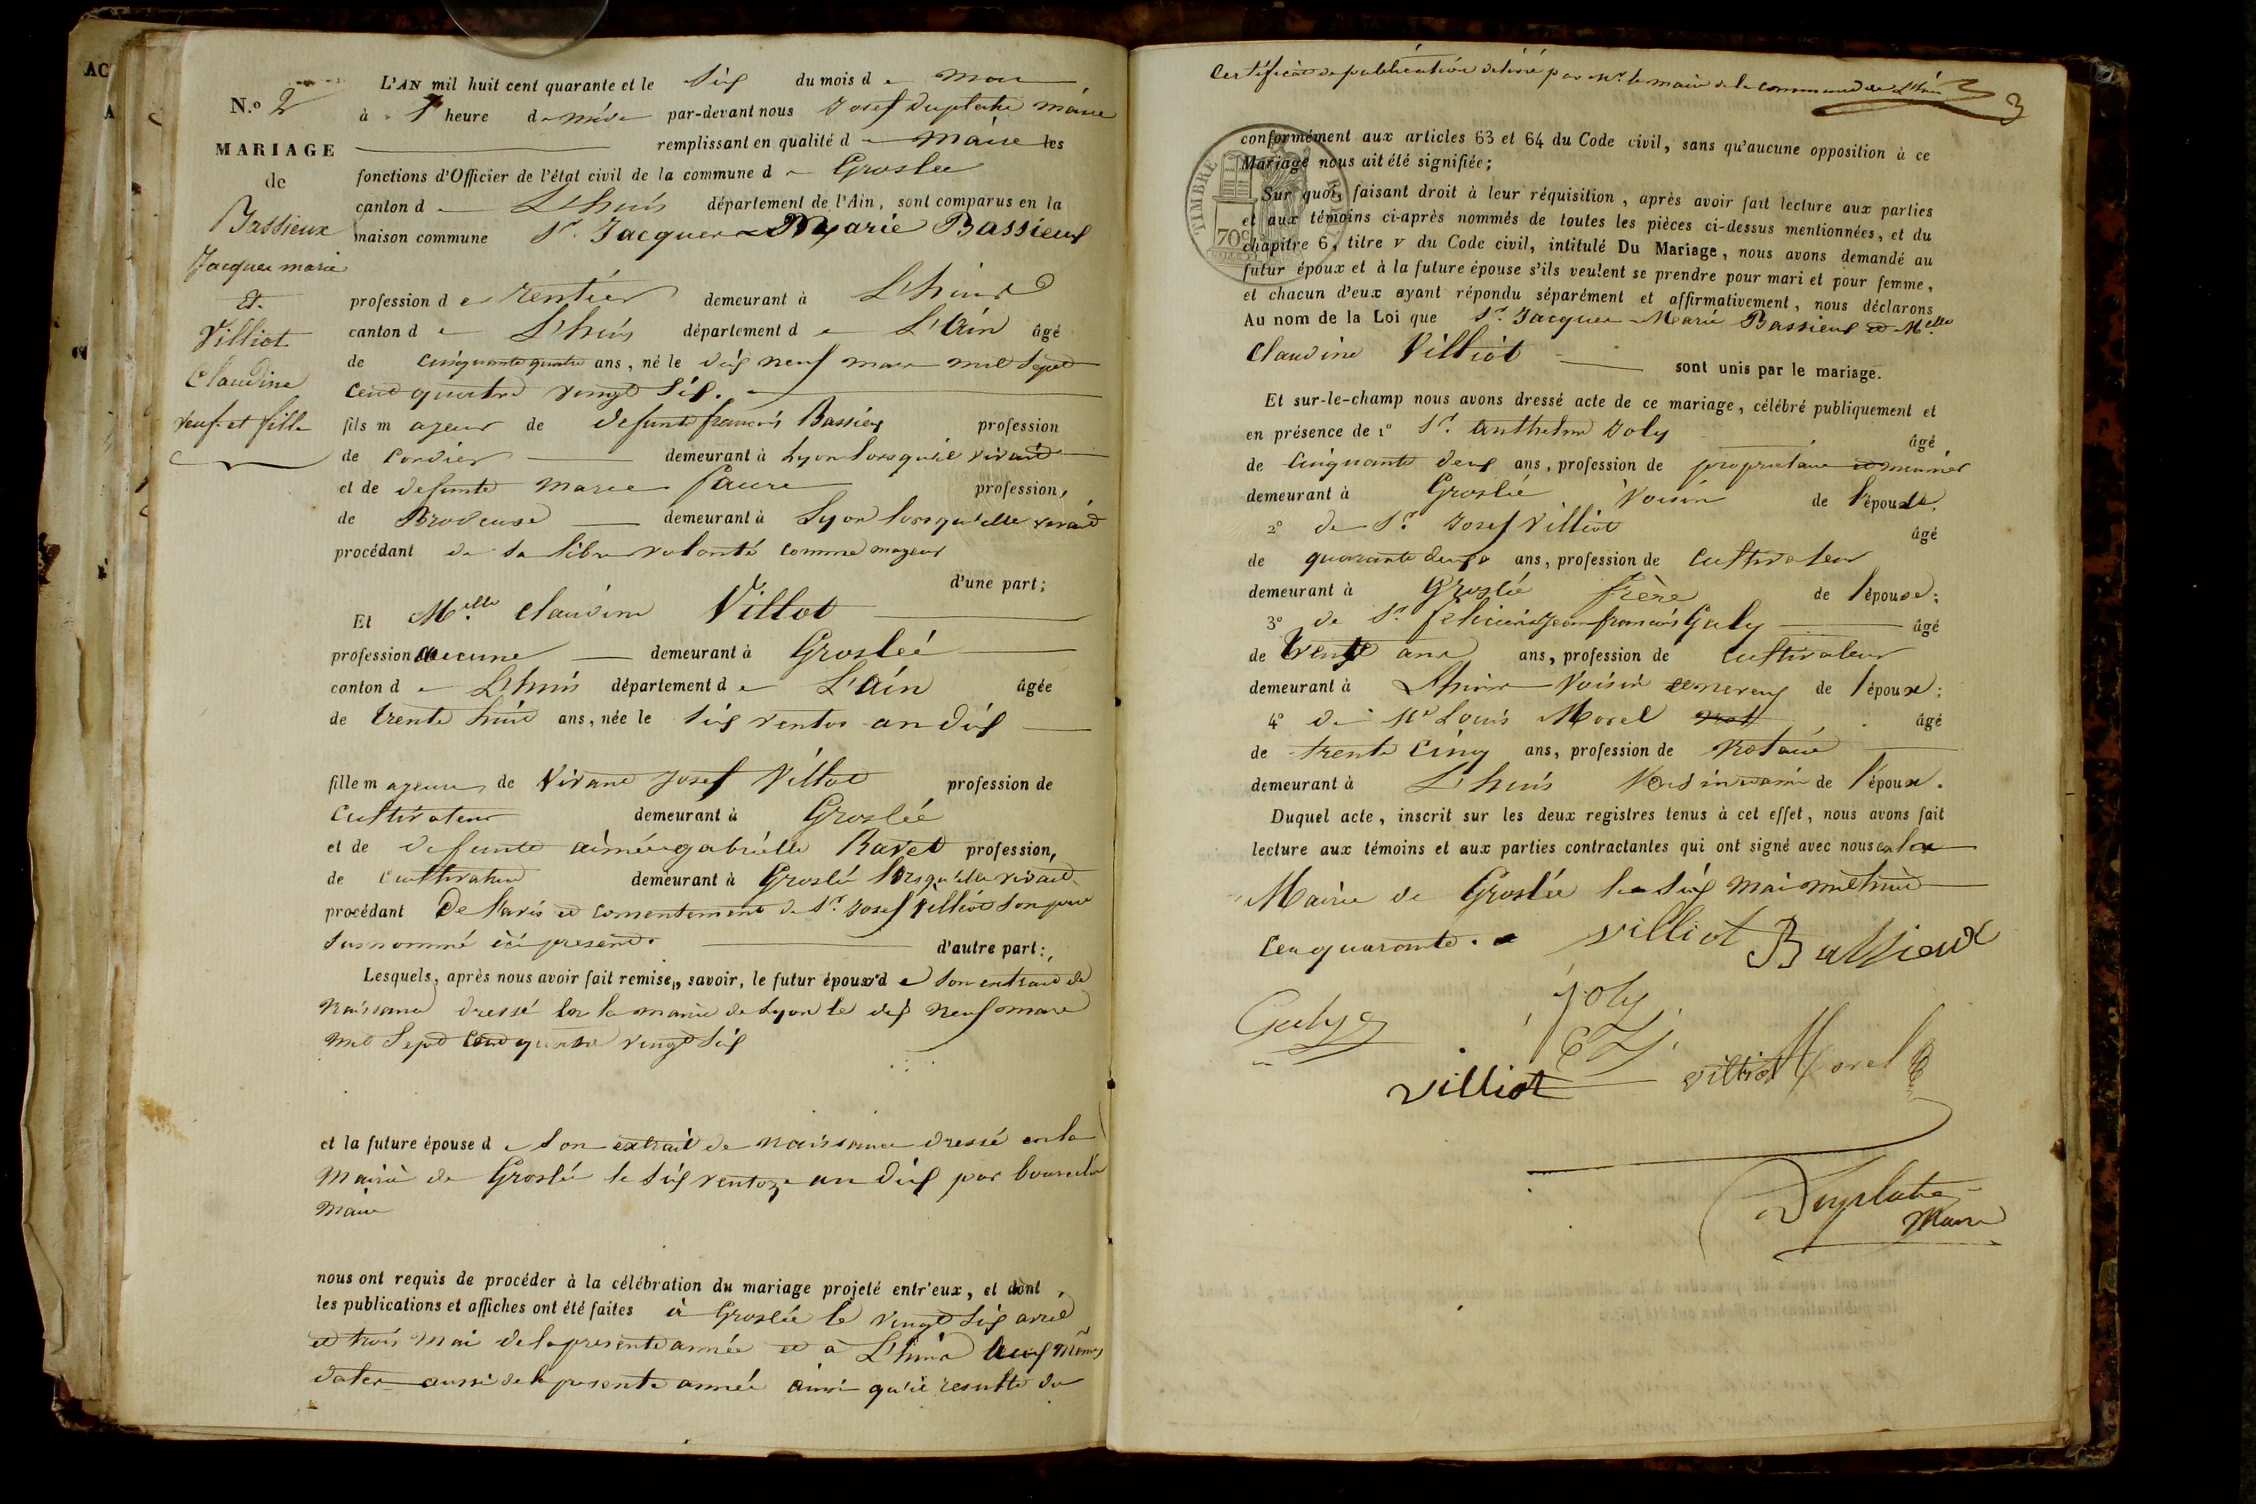 AC
A
N.o 2
MARIAGE
de
Bassieux
Jacques marie
Et
Villiot
Claudine
veuf et fille
L'AN mil huit cent quarante et le Six du mois de mai
à 1 heure de midi par-devant nous Josef Duplatre maire
remplissant en qualité de maire les
fonctions d'Officier de l'état civil de la commune de Groslée
canton de L'huis département de l'Ain, sont comparus en la
maison commune Sr Jacques Marie Bassieux
profession de rentier demeurant à L'huis
canton de L'huis département de L'Ain âgé
de cinquante quatre ans, né le dix neuf mars mil sept
cent quatre vingt six.
fils majeur de defunt françois Bassieux profession
de cordier demeurant à Lyon lorsqu'il vivait
et de defunte marie faure profession,
de Brodeuse demeurant à Lyon lorsqu'elle vivait
procédant de sa libre volonté comme majeur
d'une part;
Et Melle Claudine Villot
profession aucune demeurant à Groslée
canton de L'huis département de L'Ain âgée
de trente huit ans, née le six ventos an dix
fille majeure de vivant Josef Villot profession de
Cultivateur demeurant à Groslée
et de defunte aimée gabrielle Ravet profession,
de cultivateur demeurant à Groslée lorsqu'elle vivait
procédant De l'avis et consentement de Sr Josef Villiot son père
susnommé ici present. d'autre part:
Lesquels, après nous avoir fait remise, savoir, le futur époux de son extrait de
naissance dressé en la mairie de Lyon le dix neuf mars
mil sept cent quatre vingt six
et la future épouse de son extrait de naissance dressé en la
mairie de Groslée le six ventoze an dix par
maire
nous ont requis de procéder à la célébration du mariage projeté entr'eux, et dont
les publications et affiches ont été faites à Groslée le vingt six avril
et trois mai de la presente année et à L'huis aux mêmes
dates aussi de la presente année ainsi qu'il resulte du
Certificat de publication delivré par Mr le maire de la commune de L'huis
3
conformément aux articles 63 et 64 du Code civil, sans qu'aucune opposition à ce
Mariage nous ait été signifiée;
Sur quoi, faisant droit à leur réquisition, après avoir fait lecture aux parties
et aux témoins ci-après nommés de toutes les pièces ci-dessus mentionnées, et du
chapitre 6, titre v du Code civil, intitulé Du Mariage, nous avons demandé au
futur époux et à la future épouse s'ils veulent se prendre pour mari et pour femme,
et chacun d'eux ayant répondu séparément et affirmativement, nous déclarons
Au nom de la Loi que Sr Jacques Marie Bassieux et Melle
Claudine Villiot sont unis par le mariage.
TIMBRE
70c
Et sur-le-champ nous avons dressé acte de ce mariage, célébré publiquement et
en présence de 1o Sr. Anthelme Joly âgé
de cinquante deux ans, profession de proprietaire
demeurant à Groslée voisin de l'épouse.
2o de Sr Josef Villiot âgé
de quarante deux ans, profession de cultivateur
demeurant à Groslée frère de l'épouse;
3o de Sr felicien jean françois Galy âgé
de trente ans ans, profession de cultivateur
demeurant à L'huis voisin de l'époux;
4o de Mr Louis Morel âgé
de trente cinq ans, profession de Notaire
demeurant à L'huis de l'époux.
Duquel acte, inscrit sur les deux registres tenus à cet effet, nous avons fait
lecture aux témoins et aux parties contractantes qui ont signé avec nous en la
Mairie de Groslée le six mai mil huit
cen quarante. villiot Bassieux
joly
Galy
villiot villiot Morel
Duplatre
Maire